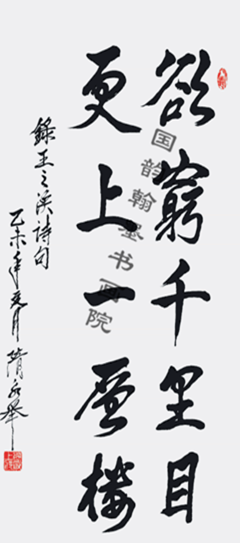 欲窮千里目
更上一層樓
錄王之渙詩句
乙未年夏月隋
国韵翰墨书画院